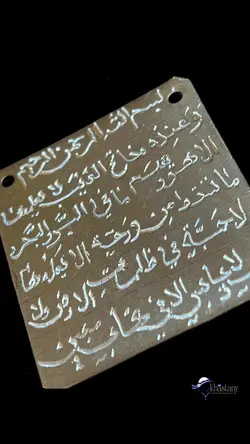 بسم الله الرحمن الرحیم
وَعِندَهُ مفاتح الغیب لا یعلمها
الا هو و یعلم ما فی البر والبحر
ما تسقط من ورقة الا یعلمها
لا حبة فی ظلمات الارض ولا
لا یابس الا فی کتاب مبین
khastany